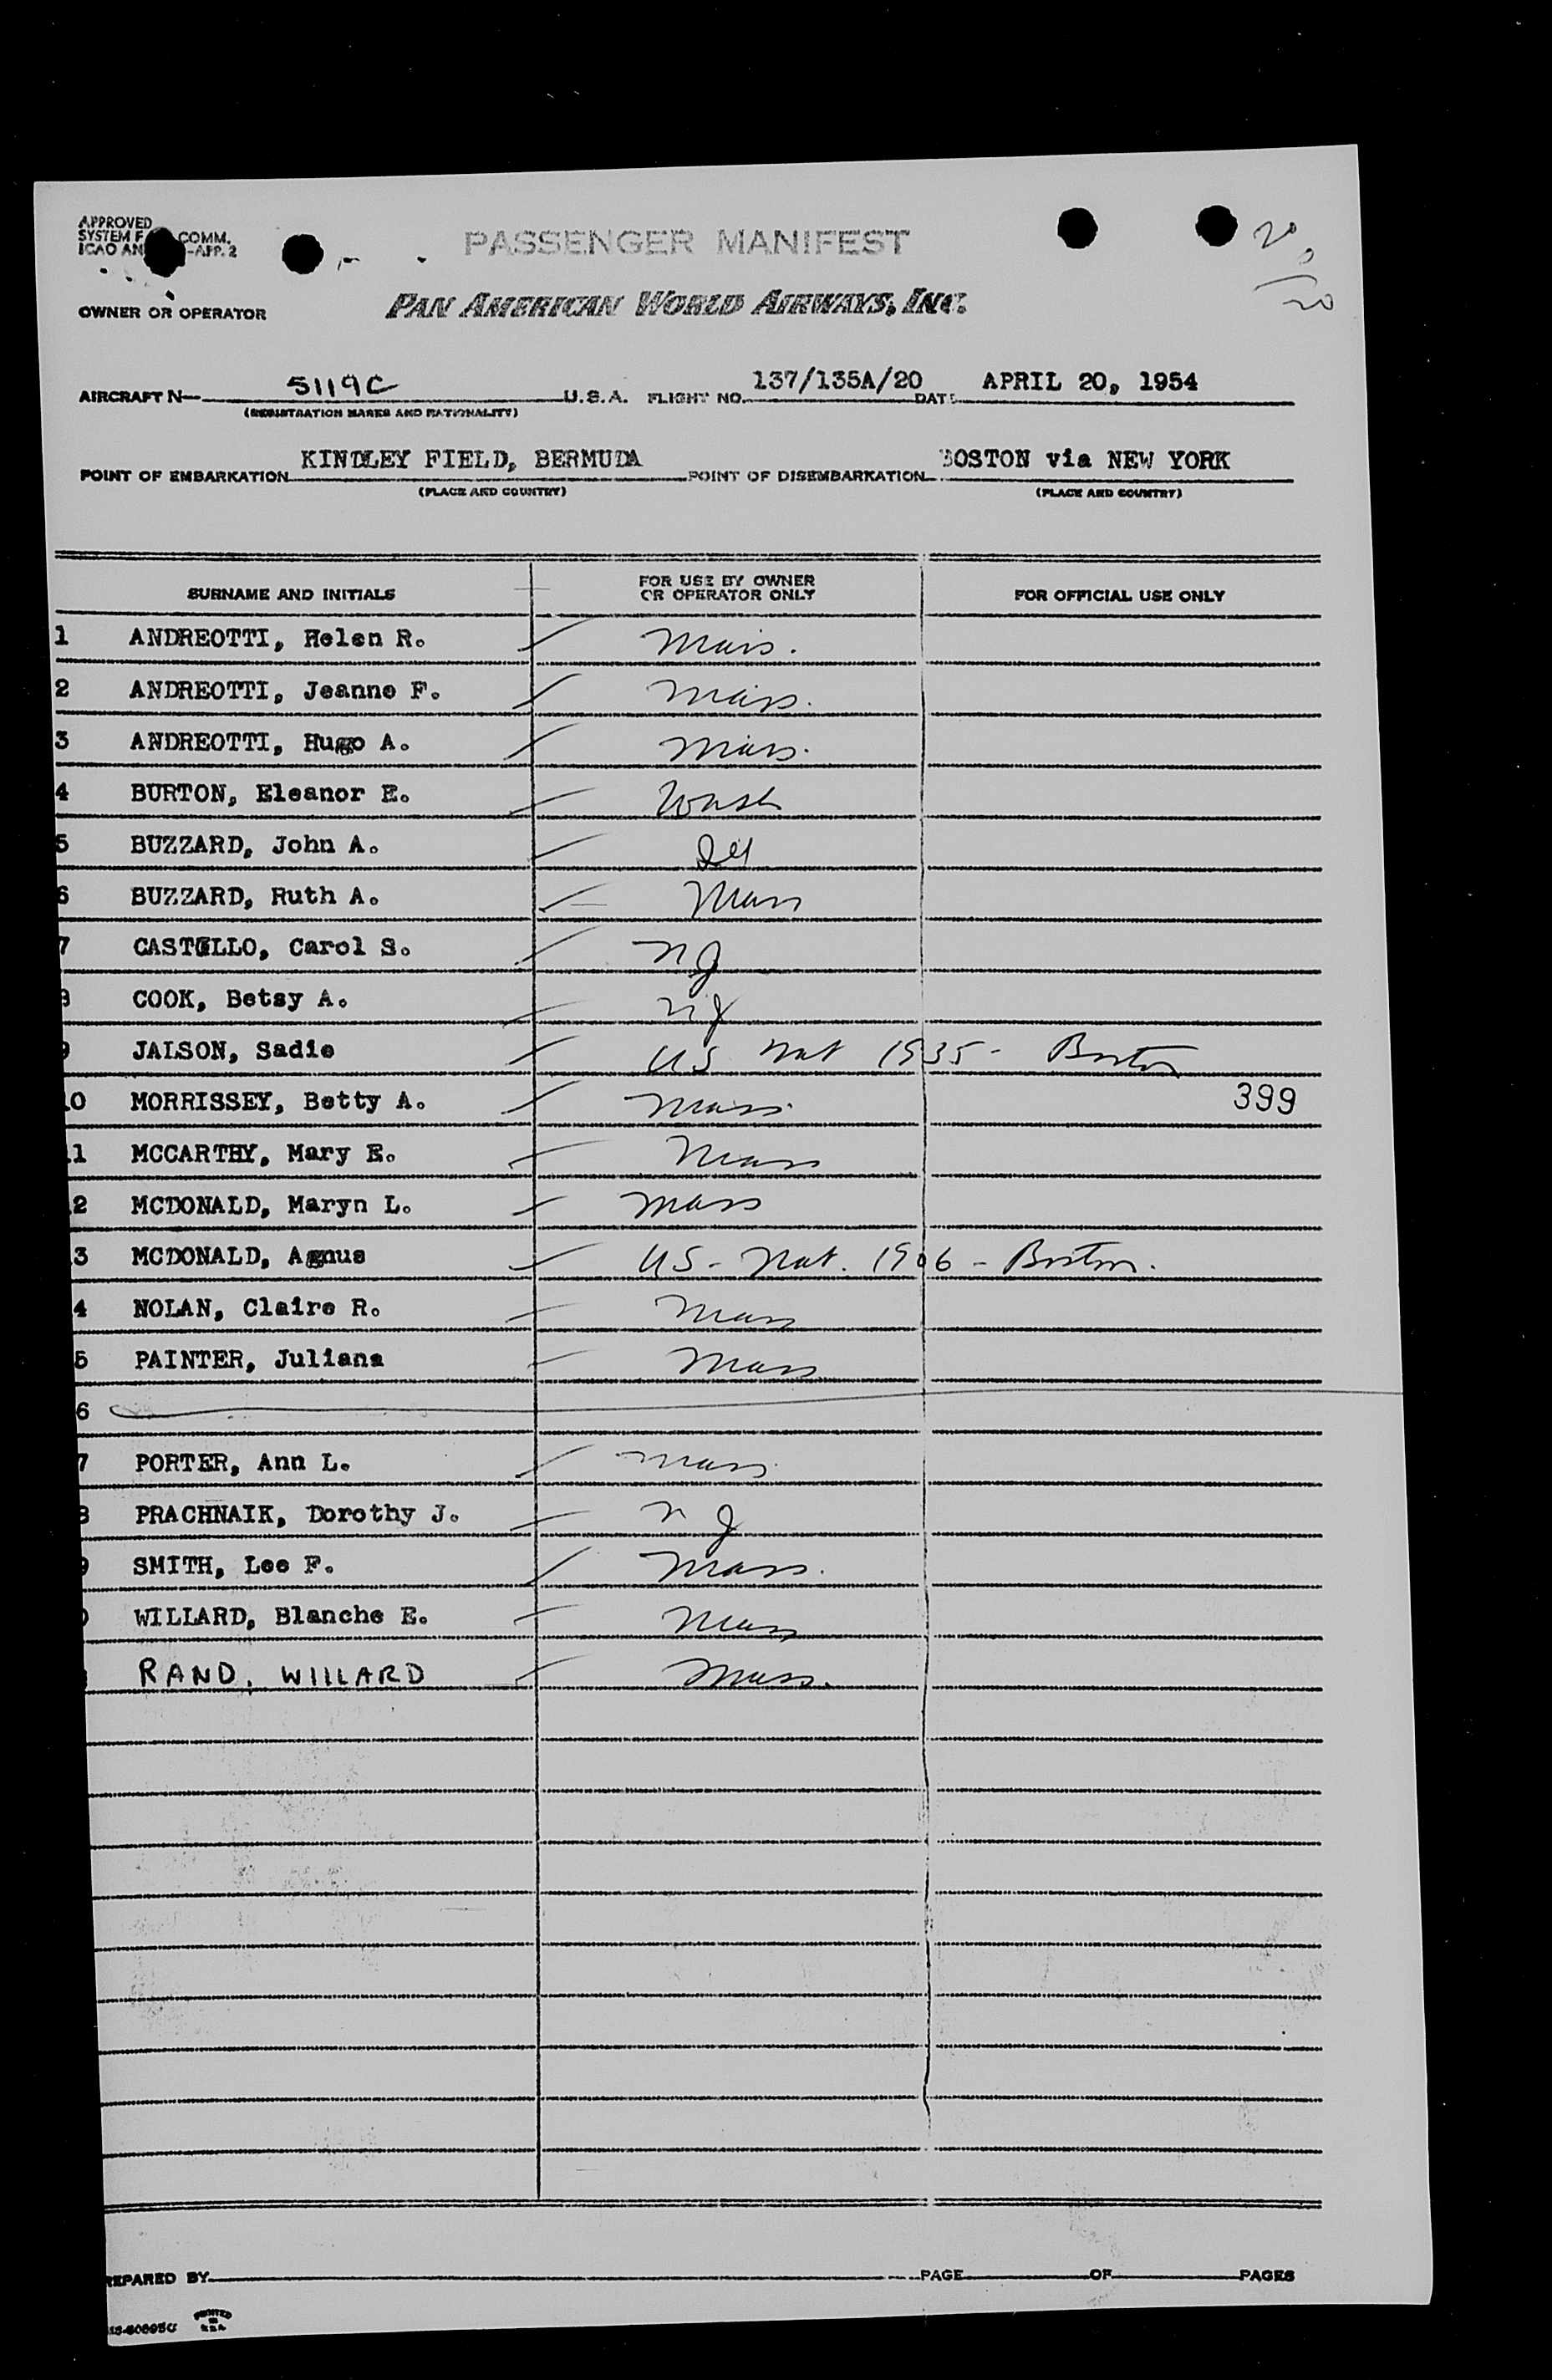 APPROVED
SYSTEM F COMM.
ICAO AN -APP. 2
PASSENGER MANIFEST
20
0
20
OWNER OR OPERATOR PAN AMERICAN WORLD AIRWAYS, INC.
AIRCRAFT N— 5119C U.S.A. FLIGHT NO. 137/135A/20 DATE APRIL 20, 1954
(REGISTRATION MARKS AND NATIONALITY)
POINT OF EMBARKATION KINDLEY FIELD, BERMUDA POINT OF DISEMBARKATION BOSTON via NEW YORK
(PLACE AND COUNTRY) (PLACE AND COUNTRY)
SURNAME AND INITIALS FOR USE BY OWNER OR OPERATOR ONLY FOR OFFICIAL USE ONLY
1 ANDREOTTI, Helen R. Mass.
2 ANDREOTTI, Jeanne F. Mass.
3 ANDREOTTI, Hugo A. Mass.
4 BURTON, Eleanor E. Wash
5 BUZZARD, John A.
6 BUZZARD, Ruth A. Mass
7 CASTELLO, Carol S. NJ
8 COOK, Betsy A. NJ
9 JALSON, Sadie US Nat 1935 - Boston
10 MORRISSEY, Betty A. Mass. 399
11 MCCARTHY, Mary E. Mass
2 MCDONALD, Maryn L. Mass
3 MCDONALD, Agnus US - Nat. 1906 - Boston.
4 NOLAN, Claire R. Mass
5 PAINTER, Juliana Mass
6
7 PORTER, Ann L. Mass
8 PRACHNAIK, Dorothy J. NJ
9 SMITH, Lee F. Mass.
WILLARD, Blanche E. Mass
RAND, WILLARD Mass.
REPARED BY PAGE OF PAGES
PRINTED IN U.S.A.